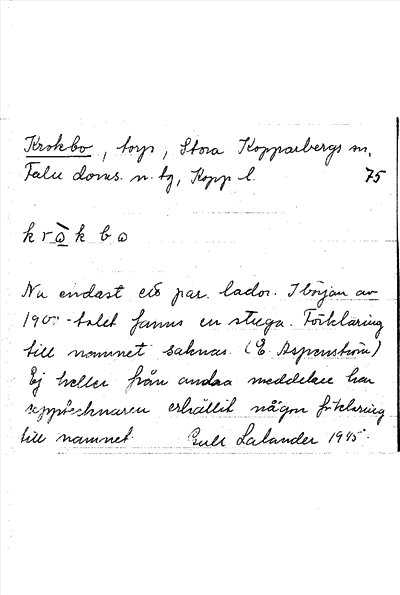 Krokbo, torp, Stora Kopparbergs sn,
Falu doms. n. tg, Kopp l. 75
k r ò k b ω
Nu endast ett par lador. I början av
1900-talet fanns en stuga. Förklaring
till namnet saknas. (E. Aspenström)
Ej heller från andra meddelare har
upptecknaren erhållit någon förklaring
till namnet. Gull Lalander 1945.